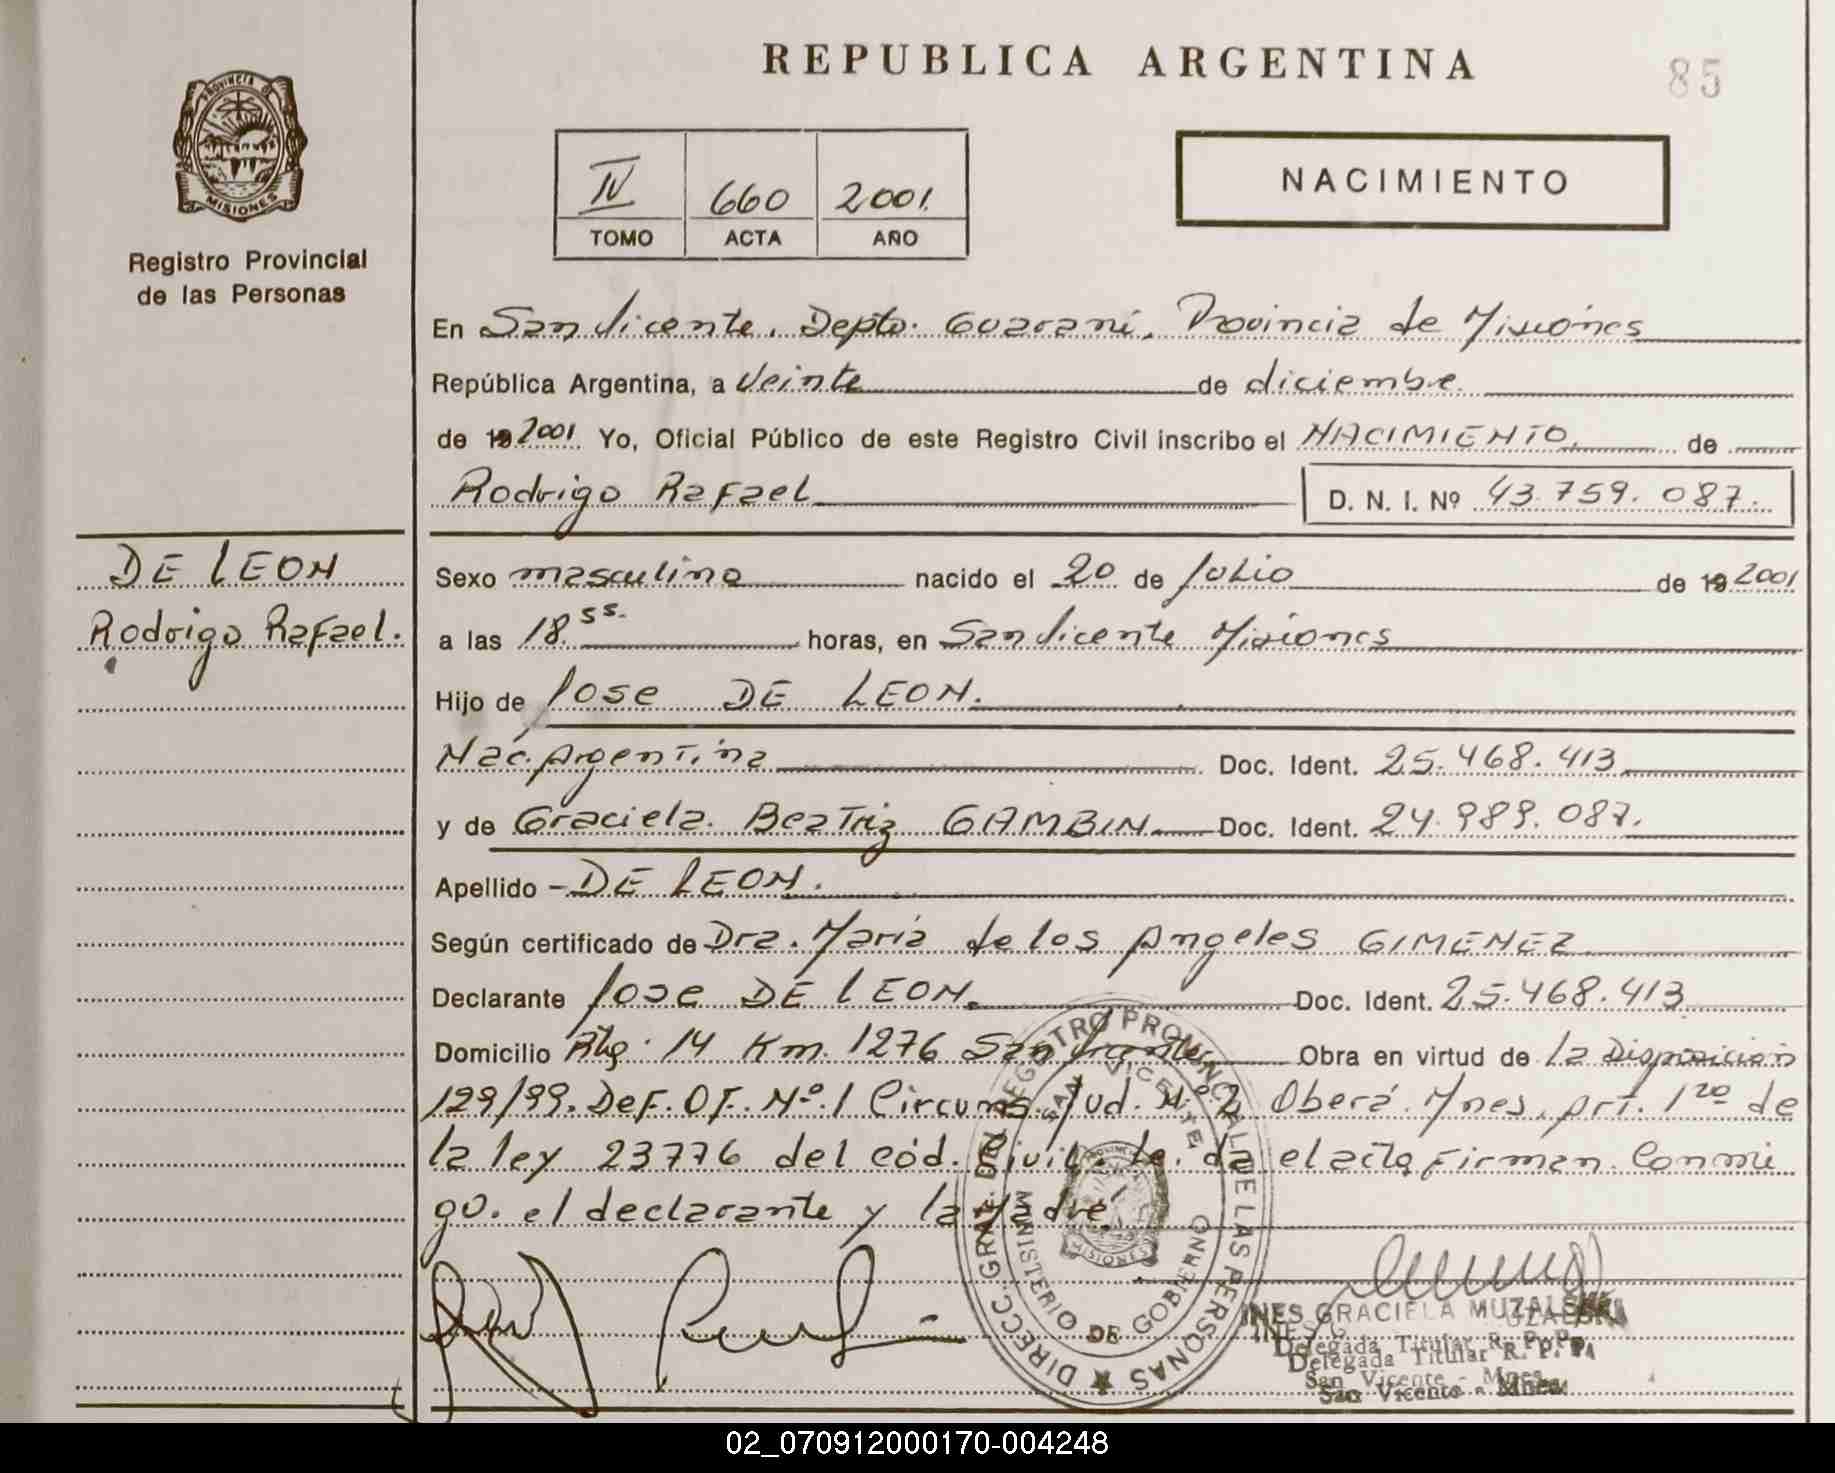 REPUBLICA ARGENTINA
85
PROVINCIA DE
MISIONES
Registro Provincial
de las Personas
IV 660 2001.
TOMO ACTA AÑO
NACIMIENTO
En San Vicente. Depto. Guaraní. Provincia de Misiones
República Argentina, a Veinte de diciembre.
de 19 2001. Yo, Oficial Público de este Registro Civil inscribo el NACIMIENTO. de
Rodrigo Rafael D. N. I. Nº 43.759.087.
DE LEON
Rodrigo Rafael.
Sexo masculino nacido el 20 de Julio de 19 2001
a las 18.55. horas, en San Vicente Misiones
Hijo de Jose DE LEON.
Nac. Argentina Doc. Ident. 25.468.413
y de Graciela. Beatriz GAMBIN. Doc. Ident. 24.989.087.
Apellido - DE LEON.
Según certificado de Dra. Maria de los Angeles GIMENEZ
Declarante Jose DE LEON. Doc. Ident. 25.468.413
Domicilio 14 Km. 1276 San Vicente Obra en virtud de la Disposicion
129/99. Def. Of. Nº.1 Circuns. Jud. Nº2 Oberá. Mnes. Art. 1ro de
la ley 23776 del cód. Civil. Le. da el acta Firman. Conmi
go. el declarante y la Madre.
DIRECC. GRAL. DEL REGISTRO PROVINCIAL DE LAS PERSONAS
SAN VICENTE
MINISTERIO DE GOBIERNO
PROVINCIA
MISIONES
INES GRACIELA
Delegada Titular R. P. P.
San Vicente - Mnes.
02_070912000170-004248